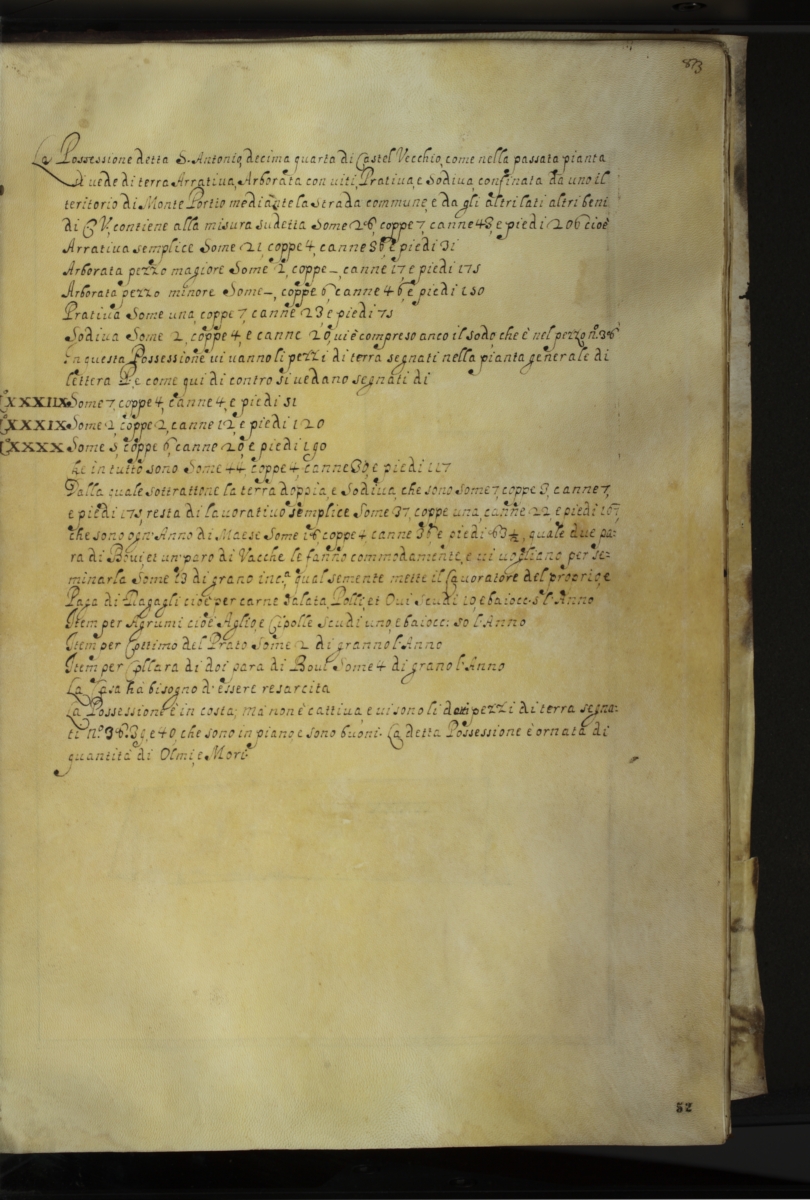 873
La Possessione detta S. Antonio, decima quarta di Castel Vecchio, come nella passata pianta
si vede di terra Arrativa, Arborata con viti, Prativa, e Sodiva, confinata da uno il
teritorio di Monte Portio mediante la strada commune, e da gli altri lati altri beni
di contiene alla misura sudetta Some 26, coppe 7, canne 48, e piedi 206 cioè
Arrativa semplice Some 21, coppe 4, canne 86 e piedi 31
Arborata pezzo magiore Some 2, coppe –, canne 17 e piedi 175
Arborata pezzo minore Some –, coppe 6, canne 46, e piedi 150
Prativa Some una, coppe 7, canne 23 e piedi 75
Sodiva Some 2, coppe 4, e canne 20, qui è compreso anco il sodo che è nel pezzo nº. 38
In questa Possessione vi vanno li pezzi di terra segnati nella pianta generale di
lettera e come qui di contro si vedano segnati di
CXXXIIX Some 7, coppe 4, canne 4, e piedi 51
CXXXIX Some 2 coppe 2, canne 12, e piedi 120
CXXXX Some 5, coppe 6, canne 20, e piedi 190
he in tutto sono Some 44, coppe 4, canne 39, e piedi 117
Dalla quale sottrattone la terra doppia, e Sodiva, che sono Some 7, coppe 3, canne 7,
e piedi 175, resta di lavorativo semplice Some 37, coppe una, canne 22 e piedi 167,
che sono ogn'Anno di Maese Some 18 coppe 4 canne 36 e piedi 63 ½, quale due pa-
ra di Bovi, et un paro di Vacche le fanno commodamente, e vi vogliano per se-
minarla Some 13 di grano inc.ª qual semente mette il Lavoratore del proprio, e
Paga di Regagli cioè per carne Salata, Polli, et Ovi Scudi 10, e baiocc. 5 l'Anno
Item per Agrumi cioè Aglio, e Cipolle Scudi uno, e baiocc: 50 l'Anno
Item per Cottimo del Prato Some 2 di granno l'Anno
Item per Collara di doi para di Bovi Some 4 di grano l'Anno
La Casa ha bisogno d'essere resarcita
La Possessione è in costa; ma non è cattiva, e vi sono li pezzi di terra segna-
ti nº. 38. 39, e 40, che sono in piano e sono buoni. La detta Possessione è ornata di
quantità di Olmi, e Mori
52